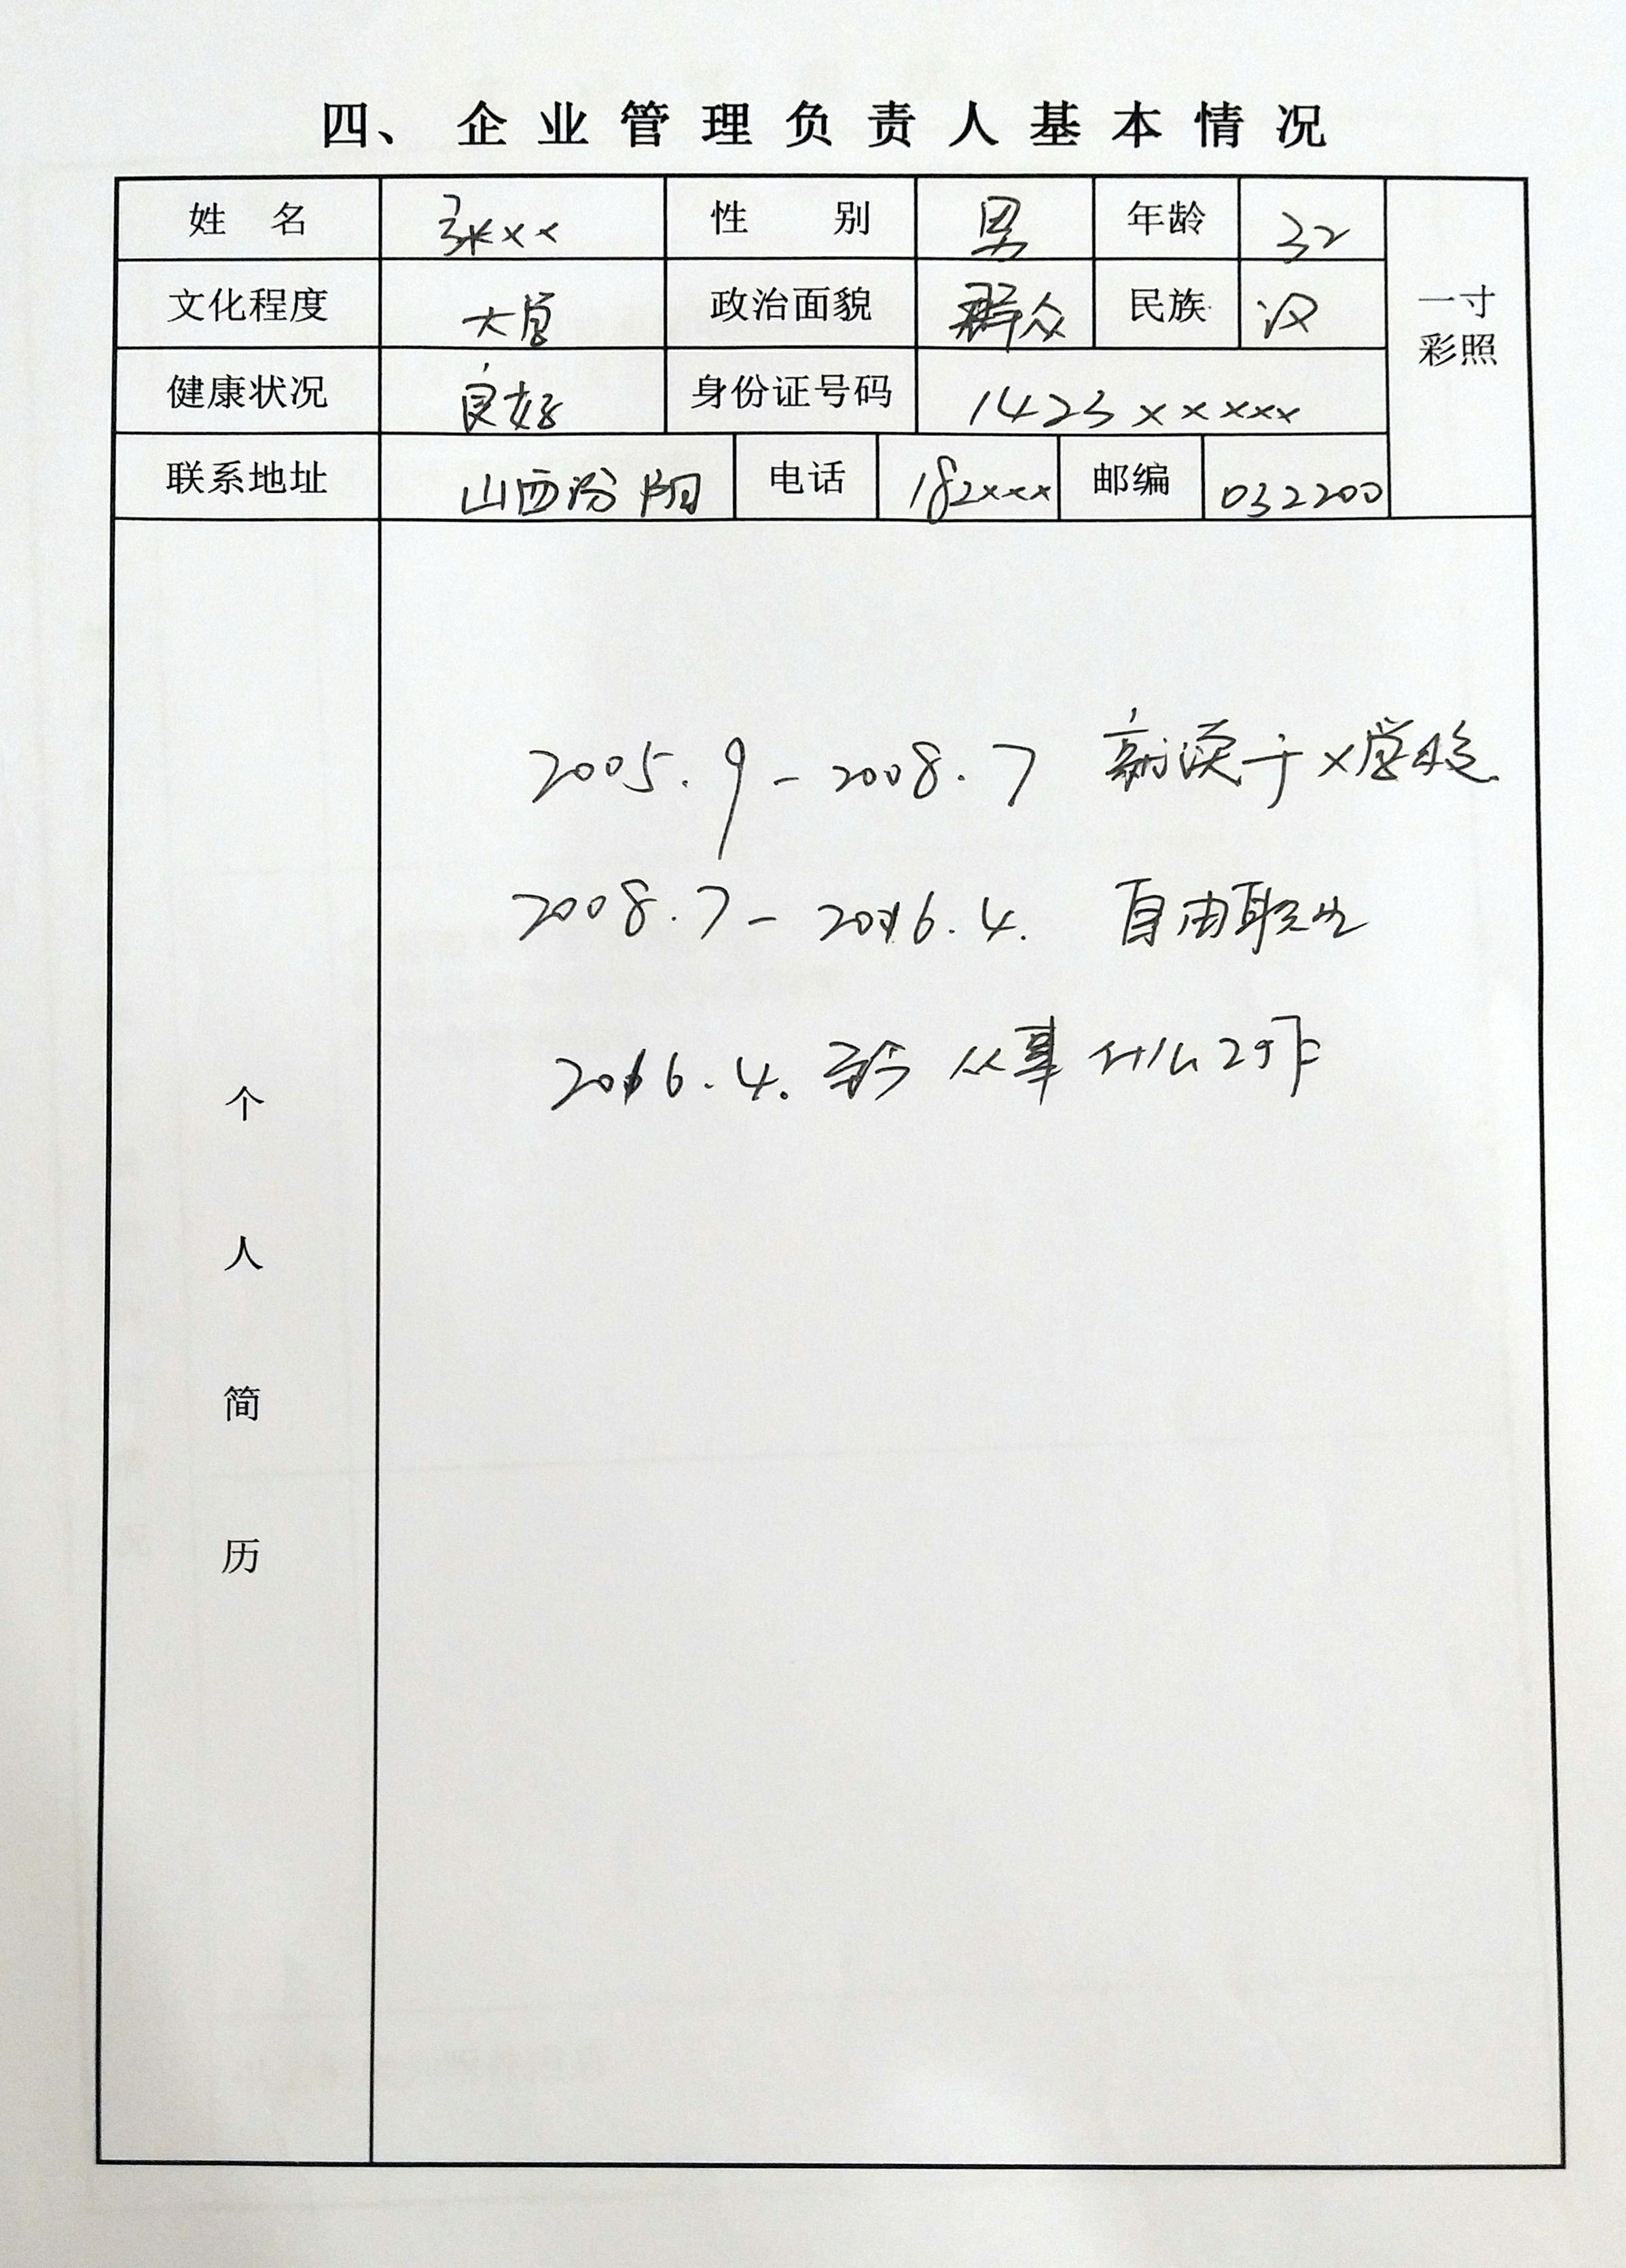 四、企业管理负责人基本情况
姓 名 张×× 性 别 男 年龄 32
文化程度 大学 政治面貌 群众 民族 汉
一寸
彩照
健康状况 良好 身份证号码 1423×××××
联系地址 山西汾阳 电话 182××× 邮编 032200
个人简历
2005.9-2008.7 就读于×学校
2008.7-2016.4. 自由职业
2016.4.至今 从事什么工作